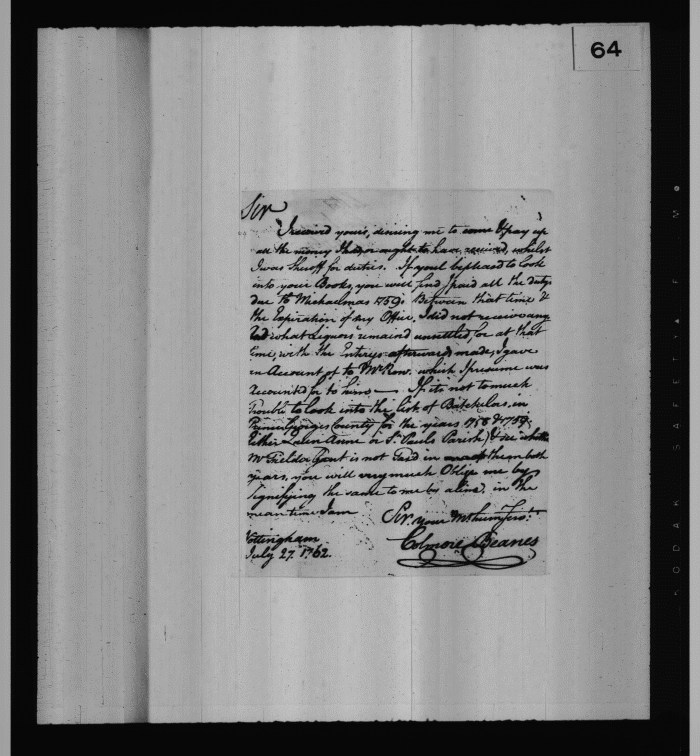 64
Sir
I received yours, desiring me to come & pay up
all the money I had, or ought to have received, whilst
I was Sheriff for duties. If you'l be pleased to look
into your Books, you will find I paid all the dutys
due to Michaelmas 1759; Between that time &
the Expiration of my Office, I did not receive any
but what Liquors remaind unsettled, for at that
time, with the Enterys afterwards made, I gave
an Account of to Mr. Row. which I presume was
Accounted for to him — If its not to much
trouble to look into the List of Batchelors, in
Prince Georges County for the years 1758 & 1759,
Either Queen Anne or St. Pauls Parish) & see whether
Mr. Fielder Gant is not Taxd in them both
years, you will very much Oblige me by
Signifying the same to me by a line, in the
mean time I am
Sir. your Mo. hum. Serv.t
Colmore Beanes
Nottingham
July 27. 1762.
KODAK SAFETY FILM